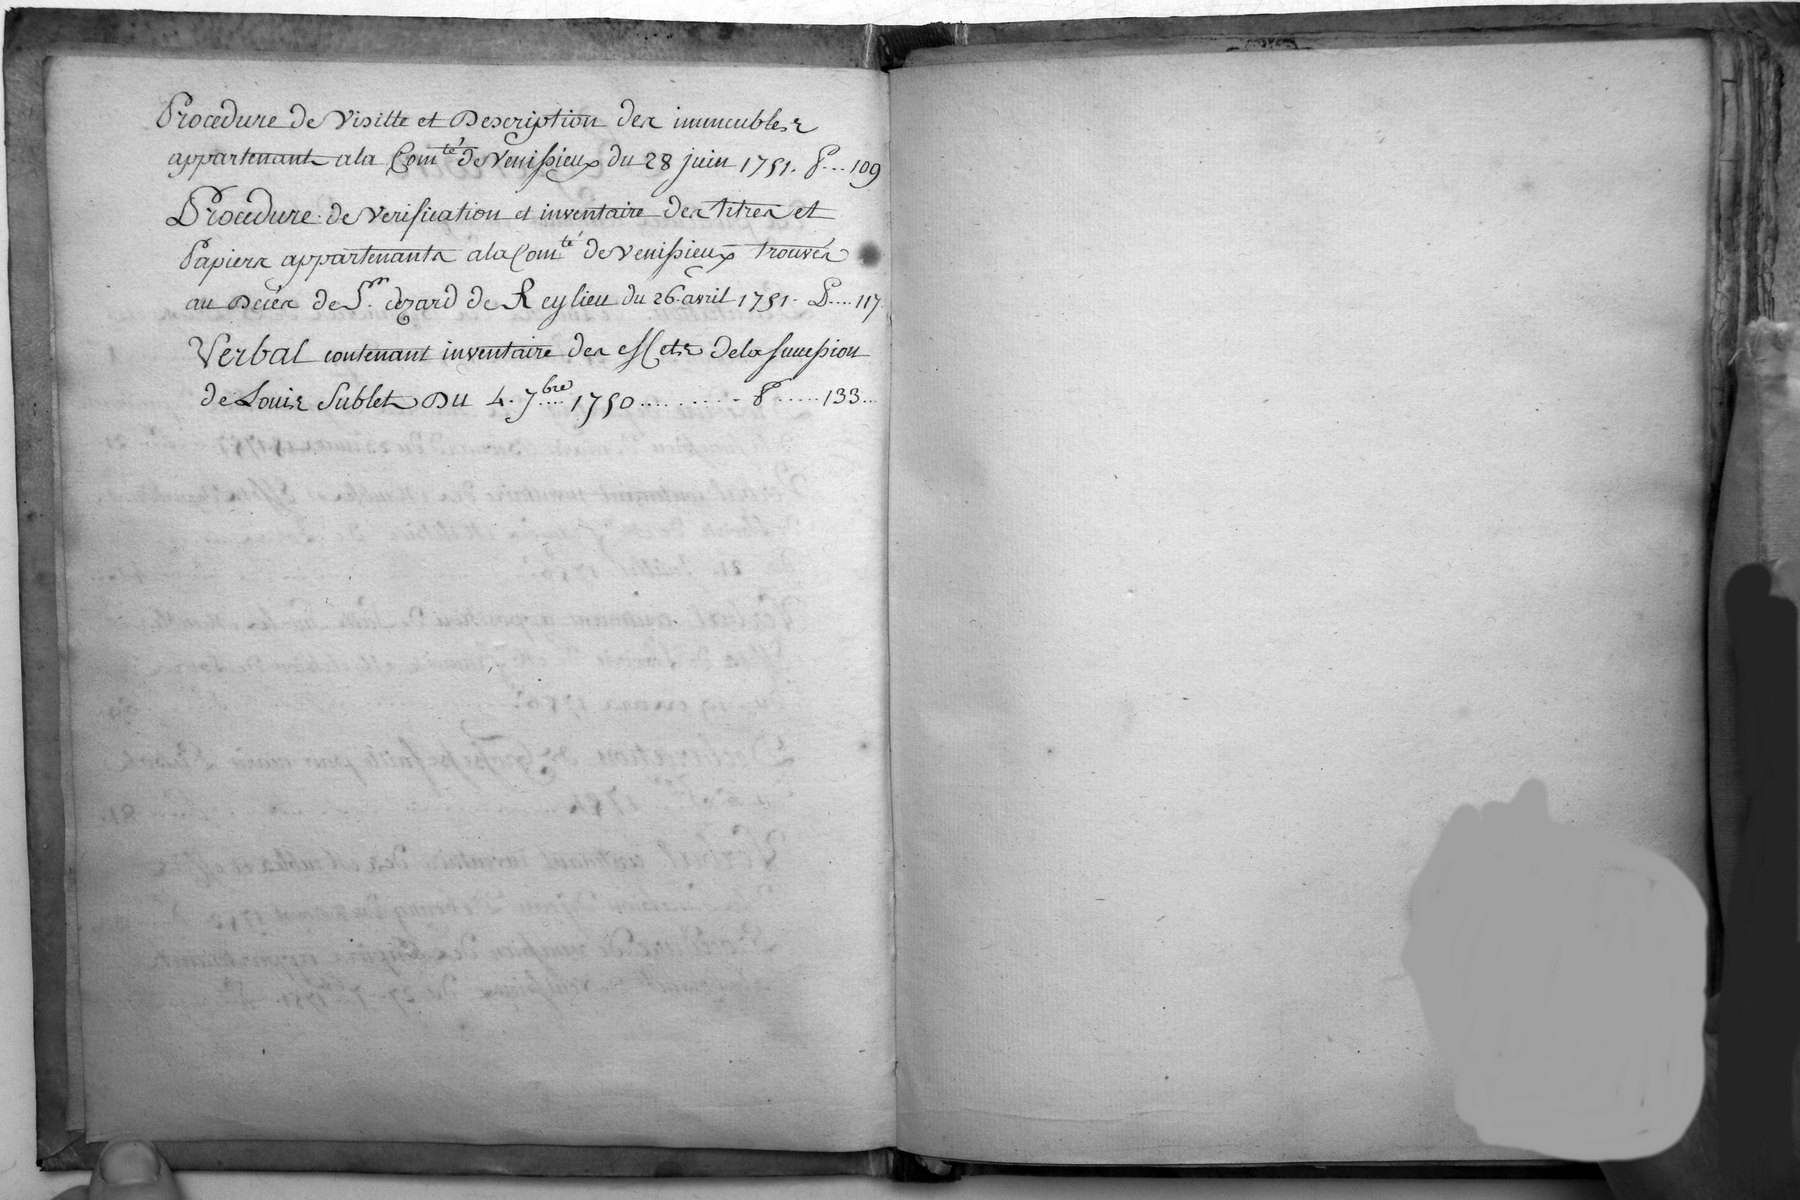 Procedure de Visitte et Description des immeubles
appartenants a la Com.té de Venissieux du 28 juin 1751. P... 109
Procedure de verification et inventaire des titres et
Papiers appartenants a la Com.té de Venissieux trouvés
au Décès de S.r cezard de Reylieu du 26. avril 1751. P.... 117
Verbal contenant inventaire des effets de la succession
de Louis Sublet DU 4. 7.bre 1750 .......... P ..... 133...